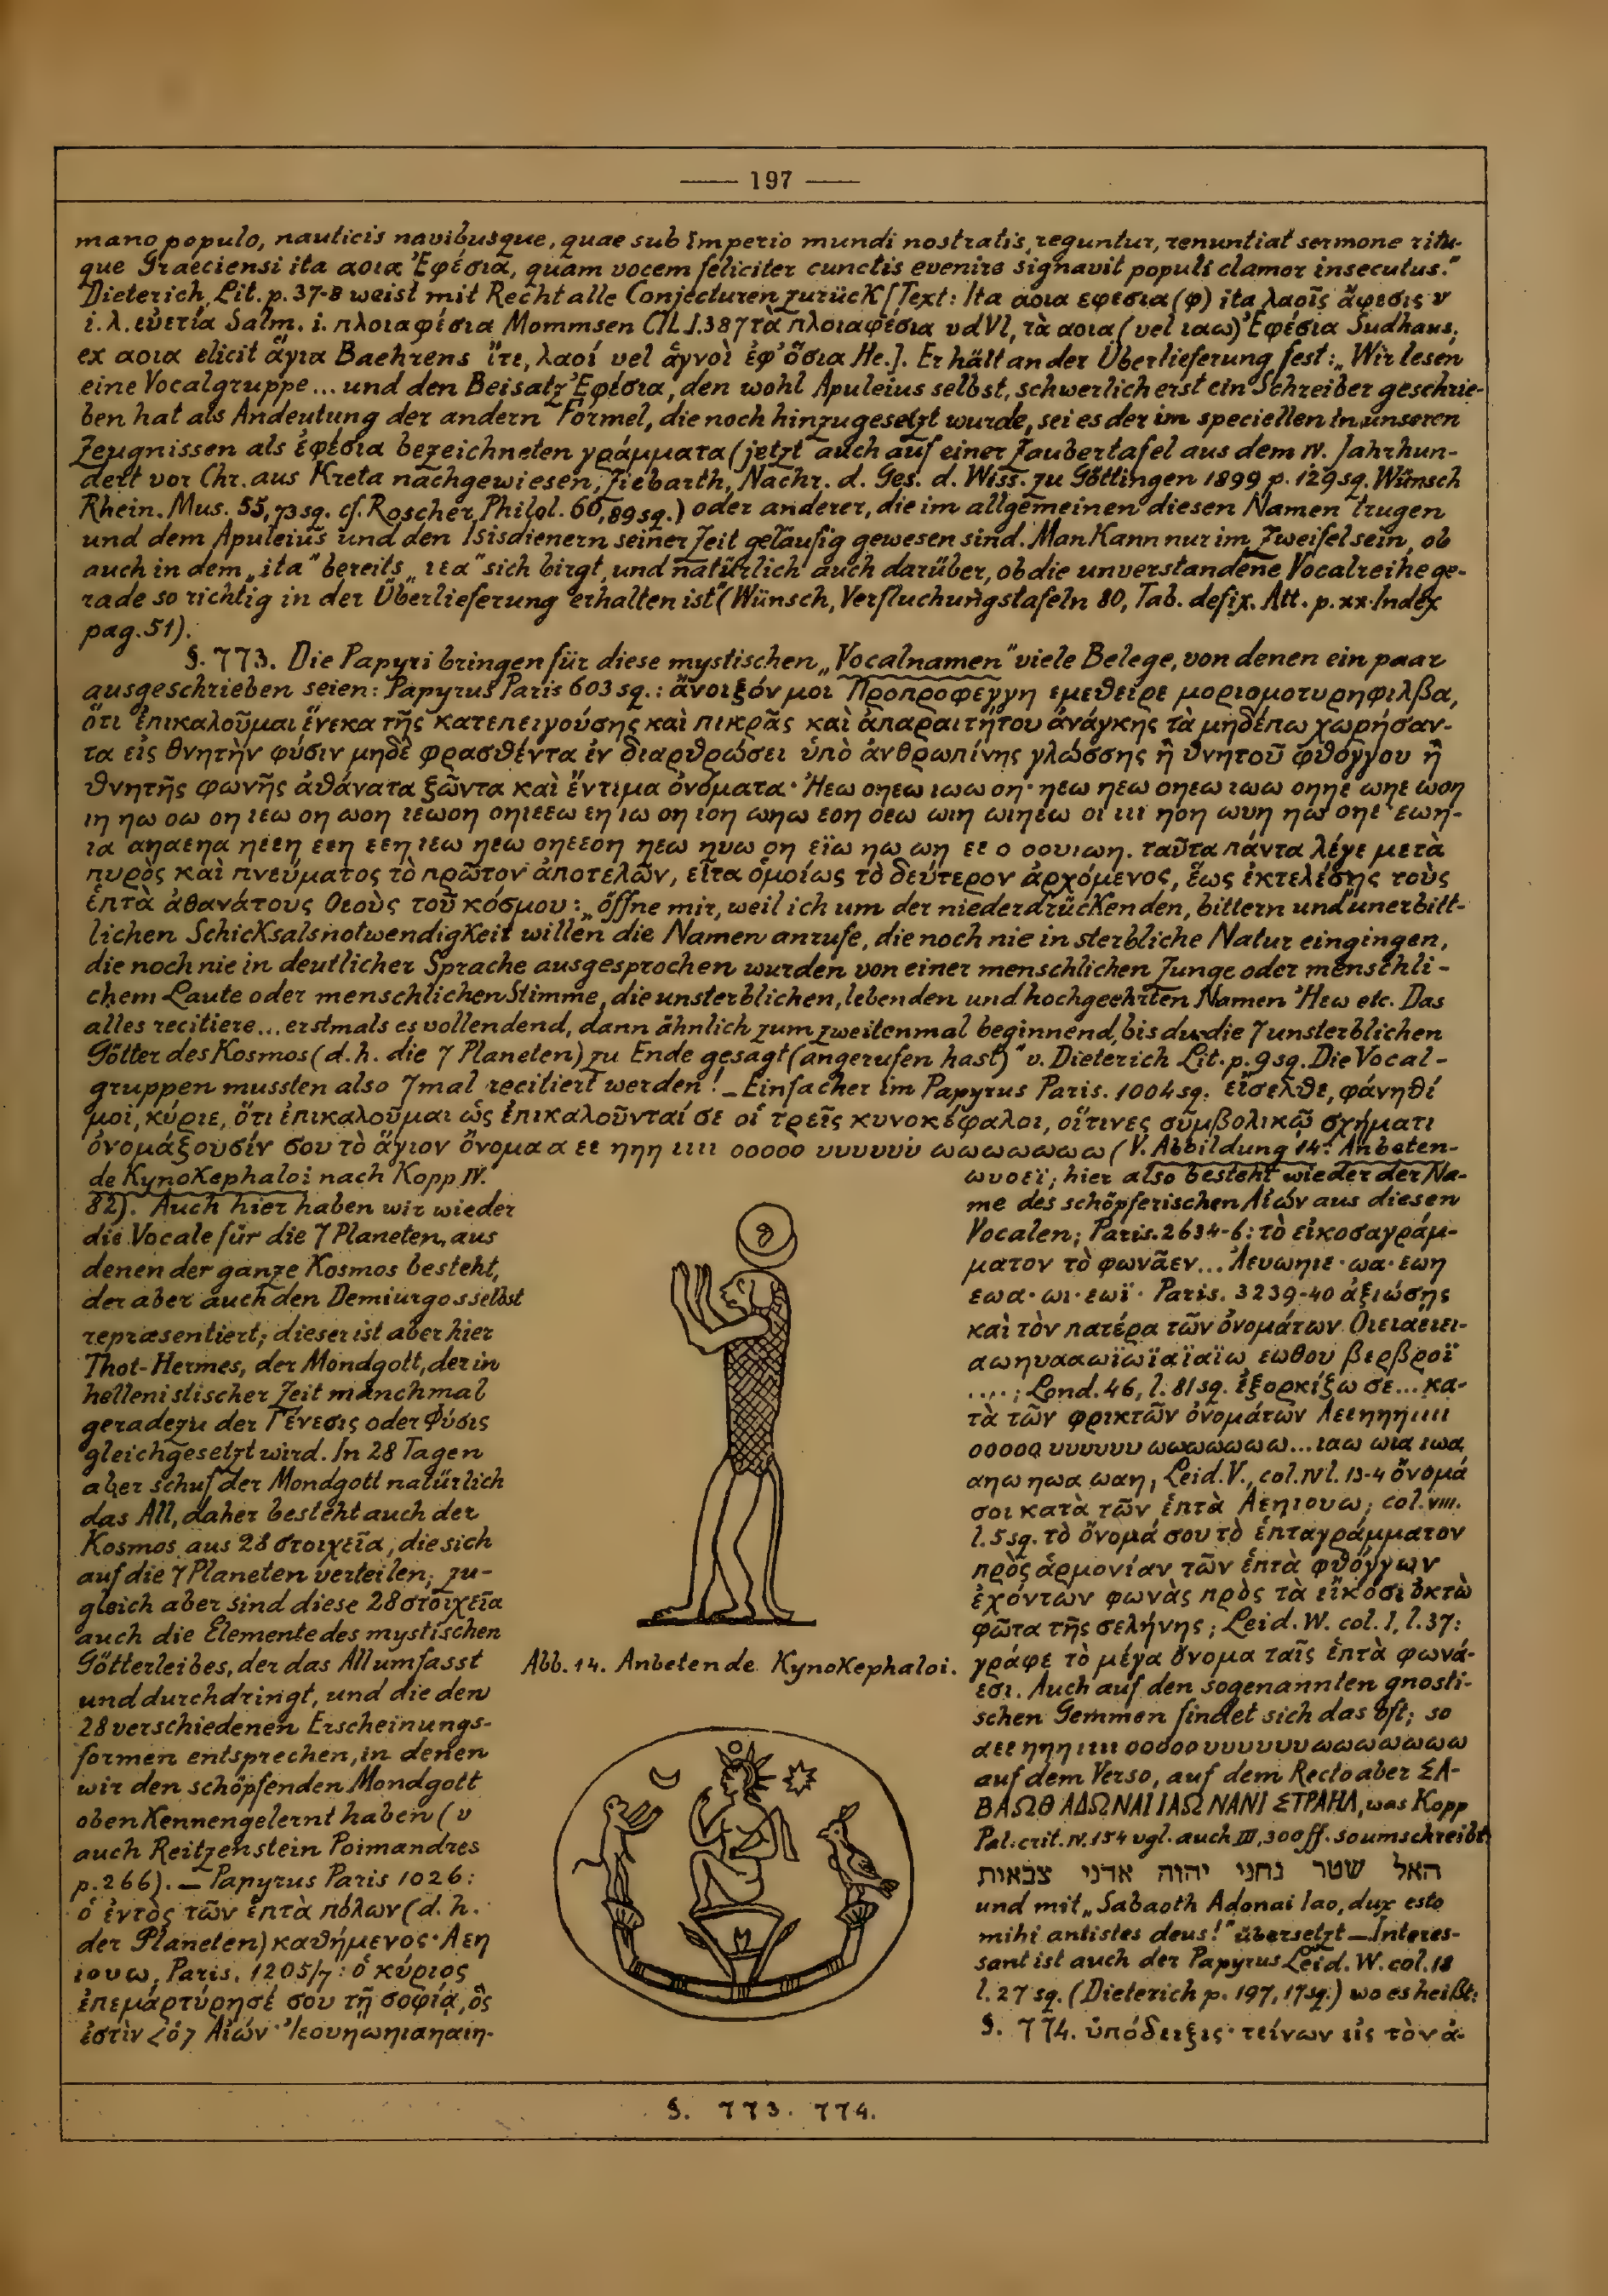 — 197 —
mano populo, nauticis navibusque, quae sub imperio mundi nostratis reguntur, renuntiat sermone ritu-
que Graeciensi ita αοια Ἐφέσια, quam vocem feliciter cunctis evenire signavit populi clamor insecutus."
Dieterich, Lit. p. 37-8 weist mit Recht alle Conjecturen zurück [Text: Ita αοια εφεσια (φ) ita λαοῖς ἄφεσις v
i. λ. εὐετία Salm. i. πλοιαφέσια Mommsen CIL I. 387 τὰ πλοιαφέσια vdVl, τὰ αοια (vel ιαω) Ἐφέσια Sudhaus,
ex αοια elicit ἅγια Baehrens ἴτε, λαοί vel ἁγνοὶ ἐφ' ὅσια He.]. Er hält an der Überlieferung fest: „Wir lesen
eine Vocalgruppe ... und den Beisatz Ἐφέσια, den wohl Apuleius selbst, schwerlich erst ein Schreiber geschrie-
ben hat als Andeutung der andern Formel, die noch hinzugesetzt wurde, sei es der im speciellen in unseren
Zeugnissen als ἐφέσια bezeichneten γράμματα (jetzt auch auf einer Zaubertafel aus dem IV. Jahrhun-
dert vor Chr. aus Kreta nachgewiesen, Ziebarth, Nachr. d. Ges. d. Wiss. zu Göttingen 1899 p. 129 sq. Wünsch
Rhein. Mus. 55, 73 sq. cf. Roscher, Philol. 60, 89 sq.) oder anderer, die im allgemeinen diesen Namen trugen
und dem Apuleius und den Isisdienern seiner Zeit geläufig gewesen sind. Man Kann nur im Zweifel sein, ob
auch in dem „ita" bereits „ιεα" sich birgt, und natürlich auch darüber, ob die unverstandene Vocalreihe ge-
rade so richtig in der Überlieferung erhalten ist" (Wünsch, Verfluchungstafeln 80, Tab. defix. Att. p. xx Index
pag. 51).
§. 773. Die Papyri bringen für diese mystischen „Vocalnamen" viele Belege, von denen ein paar
ausgeschrieben seien: Papyrus Paris 603 sq.: ἄνοιξόν μοι Προπροφεγγη εμεθειρε μοριομοτυρηφιλβα,
ὅτι ἐπικαλοῦμαι ἕνεκα τῆς κατεπειγούσης καὶ πικρᾶς καὶ ἀπαραιτήτου ἀνάγκης τὰ μηδέπω χωρήσαν-
τα εἰς θνητὴν φύσιν μηδὲ φρασθέντα ἐν διαρθρώσει ὑπὸ ἀνθρωπίνης γλώσσης ἢ θνητοῦ φθόγγου ἢ
θνητῆς φωνῆς ἀθάνατα ζῶντα καὶ ἔντιμα ὀνόματα· Ἠεω οηεω ιωω οη· ηεω ηεω οηεω ιωω οηηε ωηε ωοη
ιη ηω οω οη ιεω οη ωοη ιεωοη οηιεεω εη ιω οη ιοη ωηω εοη οεω ωιη ωιηεω οι ιιι ηοη ωυη ηω οηε εωη-
ια αηαεηα ηεεη εεη εεη ιεω ηεω οηεεοη ηεω ηυω οη εϊω ηω ωη εε ο οουιωη. ταῦτα πάντα λέγε μετὰ
πυρὸς καὶ πνεύματος τὸ πρῶτον ἀποτελῶν, εἶτα ὁμοίως τὸ δεύτερον ἀρχόμενος, ἕως ἐκτελέσῃς τοὺς
ἑπτὰ ἀθανάτους θεοὺς τοῦ κόσμου: „öffne mir, weil ich um der niederdrückenden, bittern und unerbitt-
lichen Schicksalsnotwendigkeit willen die Namen anrufe, die noch nie in sterbliche Natur eingingen,
die noch nie in deutlicher Sprache ausgesprochen wurden von einer menschlichen Zunge oder menschli-
chem Laute oder menschlichen Stimme, die unsterblichen, lebenden und hochgeehrten Namen Ἠεω etc. Das
alles recitiere ... erstmals es vollendend, dann ähnlich zum zweitenmal beginnend, bis du die 7 unsterblichen
Götter des Kosmos (d. h. die 7 Planeten) zu Ende gesagt (angerufen hast)" v. Dieterich Lit. p. 9 sq. Die Vocal-
gruppen mussten also 7mal recitiert werden! — Einfacher im Papyrus Paris. 1004 sq. εἴσελθε, φάνηθί
μοι, κύριε, ὅτι ἐπικαλοῦμαι ὡς ἐπικαλοῦνταί σε οἱ τρεῖς κυνοκέφαλοι, οἵτινες συμβολικῷ σχήματι
ὀνομάζουσίν σου τὸ ἅγιον ὄνομα α εε ηηη ιιιι οοοοο υυυυυυ ωωωωωωω (V. Abbildung 14: Anbeten-
de Kynokephaloi nach Kopp IV.
82). Auch hier haben wir wieder
die Vocale für die 7 Planeten, aus
denen der ganze Kosmos besteht,
der aber auch den Demiurgos selbst
repraesentiert; dieser ist aber hier
Thot-Hermes, der Mondgott, der in
hellenistischer Zeit manchmal
geradezu der Γένεσις oder Φύσις
gleichgesetzt wird. In 28 Tagen
aber schuf der Mondgott natürlich
das All, daher besteht auch der
Kosmos aus 28 στοιχεῖα, die sich
auf die 7 Planeten verteilen; zu-
gleich aber sind diese 28 στοιχεῖα
auch die Elemente des mystischen
Götterleibes, der das All umfasst
und durchdringt, und die den
28 verschiedenen Erscheinungs-
formen entsprechen, in denen
wir den schöpfenden Mondgott
oben Kennengelernt haben (v
auch Reitzenstein Poimandres
p. 266). — Papyrus Paris 1026:
ὁ ἐντὸς τῶν ἑπτὰ πόλων (d. h.
der Planeten) καθήμενος· Αεη
ιουω, Paris. 1205/7: ὁ κύριος
ἐπεμαρτύρησέ σου τῇ σοφίᾳ, ὅς
ἐστὶν <ὁ> Αἰών· Ἰεουηωηιαηαιη-
Abb. 14. Anbetende Kynokephaloi.
ωυοεϊ; hier also besteht wieder der Na-
me des schöpferischen Αἰών aus diesen
Vocalen; Paris. 2634-6: τὸ εἰκοσαγράμ-
ματον τὸ φωνᾶεν ... Ἀευωηιε · ωα · εωη
εωα · ωι · εωϊ · Paris. 3239-40 ἀξιώσῃς
καὶ τὸν πατέρα τῶν ὀνομάτων Οιειαειει-
αωηυααωϊωϊαϊαϊω εωθου βερβροϊ
....; Lond. 46, l. 81 sq. ἐξορκίζω σε ... κα-
τὰ τῶν φρικτῶν ὀνομάτων Αεεηηηιιιι
οοοοο υυυυυυ ωωωωωωω ... ιαω ωια ιωα
αηω ηωα ωαη; Leid. V., col. IV l. 13-4 ὄνομά
σοι κατὰ τῶν ἑπτὰ Αεηιουω; col. VIII.
l. 5 sq. τὸ ὄνομά σου τὸ ἑπταγράμματον
πρὸς ἁρμονίαν τῶν ἑπτὰ φθόγγων
ἐχόντων φωνὰς πρὸς τὰ εἴκοσι ὀκτὼ
φῶτα τῆς σελήνης; Leid. W. col. I, l. 37:
γράφε τὸ μέγα ὄνομα ταῖς ἑπτὰ φωνά-
εσι. Auch auf den sogenannten gnosti-
schen Gemmen findet sich das oft; so
αεε ηηη ιιιι οοοοο υυυυυυ ωωωωωωω
auf dem Verso, auf dem Recto aber ΣΑ-
ΒΑΩΘ ΑΔΩΝΑΙ ΙΑΩ ΝΑΝΙ ΣΤΡΑΗΛ, was Kopp
Pal. crit. IV. 154 vgl. auch III, 300 ff. so umschreibt
האל שטר נחני יהוה אדני צבאות
und mit „Sabaoth Adonai Iao, dux esto
mihi antistes deus!" übersetzt — Interes-
sant ist auch der Papyrus Leid. W. col. 18
l. 27 sq. (Dieterich p. 197, 17 sq.) wo es heißt:
§. 774. ὑπόδειξις· τείνων εἰς τὸν ἀ-
§. 773. 774.